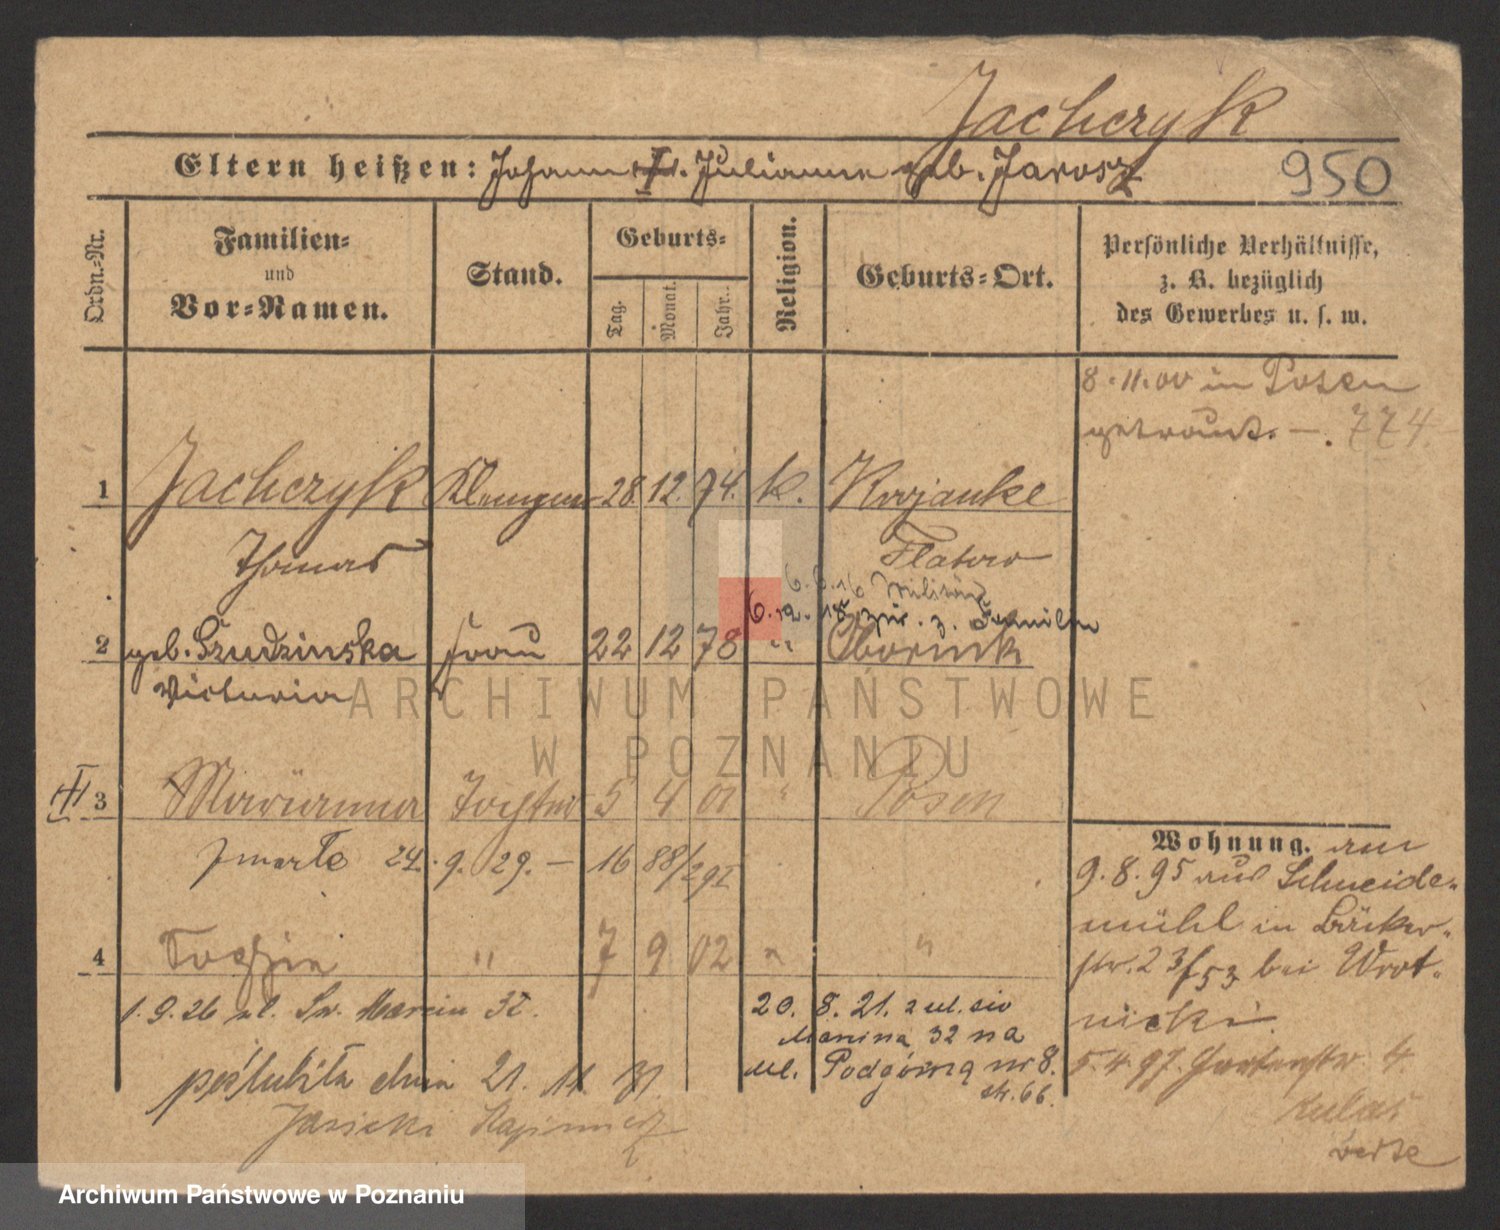 Jachczyk
Eltern heißen: Johann u. Julianna geb. Jarosz 950
Ordn.-Nr.
Familien-
und
Vor-Namen.
Stand.
Geburts-
Tag.
Monat.
Jahr.
Religion.
Geburts-Ort.
Persönliche Verhältnisse,
z. B. bezüglich
des Gewerbes u. s. w.
8.11.00 in Posen
getraut. — . 774
1 Jachczyk Klempner 28. 12. 74. k. Krojanke
Thomas Flatow
6.6.16 Militär
6.12.18 zur. z. Familie
2 geb. Szudzinska Frau 22 12 78 " Obornik
Victoria
3 Marianna Tochter 5 4 01 " Posen
zmarła 24. 9. 29. — 16 88/29 I
4 Sophia " 7 9 02 " "
1.9.26 ul. Św. Marcin 32.
poślubiła dnia 21. 11. 31
Jasicki Kazimierz
20. 8. 21. z ul. św
Marcina 32 na
ul. Podgórną nr 8.
str. 66.
Wohnung. am
9.8.95 aus Schneide-
mühl in Bäcker-
str. 23/53 bei Wrot-
nicki.
5.4.97. Gartenstr 4.
verte